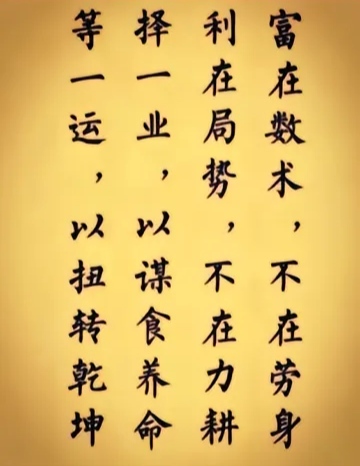 富在数术，不在劳身
利在局势，不在力耕
择一业，以谋食养命
等一运，以扭转乾坤